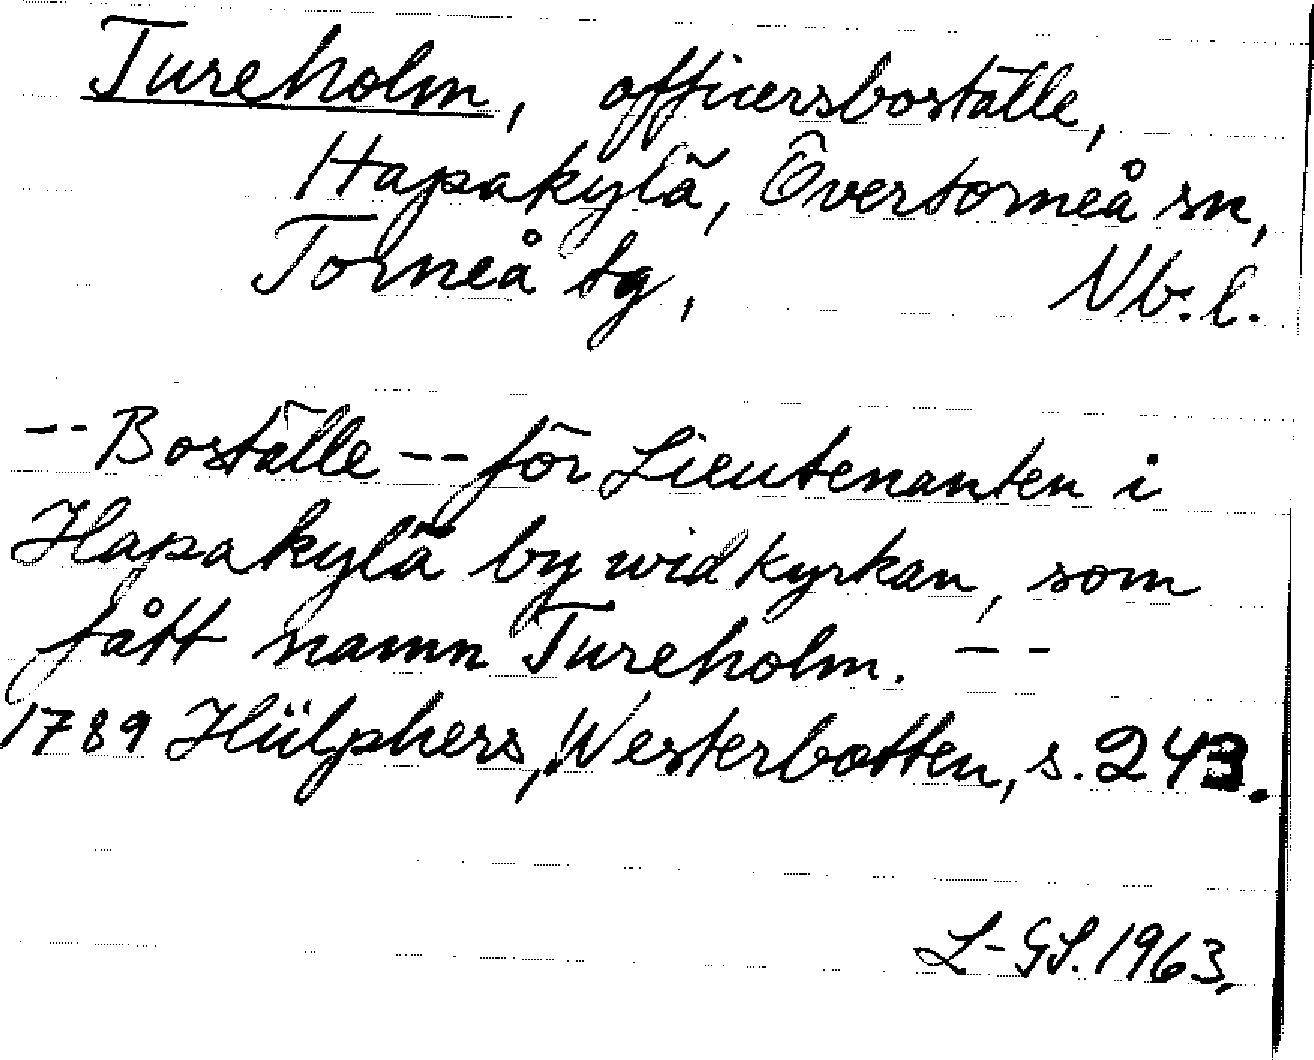 Tureholm, officersboställe,
Hapakylä, Övertorneå sn,
Torneå tg, Nb. l.
-- Boställe -- för Lieutenanten i
Hapakylä by wid kyrkan, som
fått namn Tureholm. --
1789 Hülphers, Westerbotten, s. 243.
L-GS. 1963.